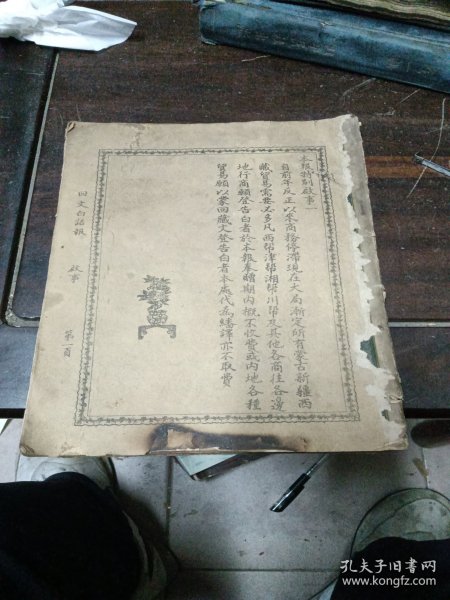 本报特别啟事一
自前年反正以来商務停滞現在大局漸定所有蒙古新疆西
藏貿易需要必多凡西幇津幇湘幇川幇及其他各商往各邊
地行商願登告白者於本報奉贈期内概不收費或内地各種
貿易願以蒙回藏文登告白者本處代為繙譯亦不取費
回文白話報
啟事
第一頁
孔夫子旧书网
www.kongfz.com